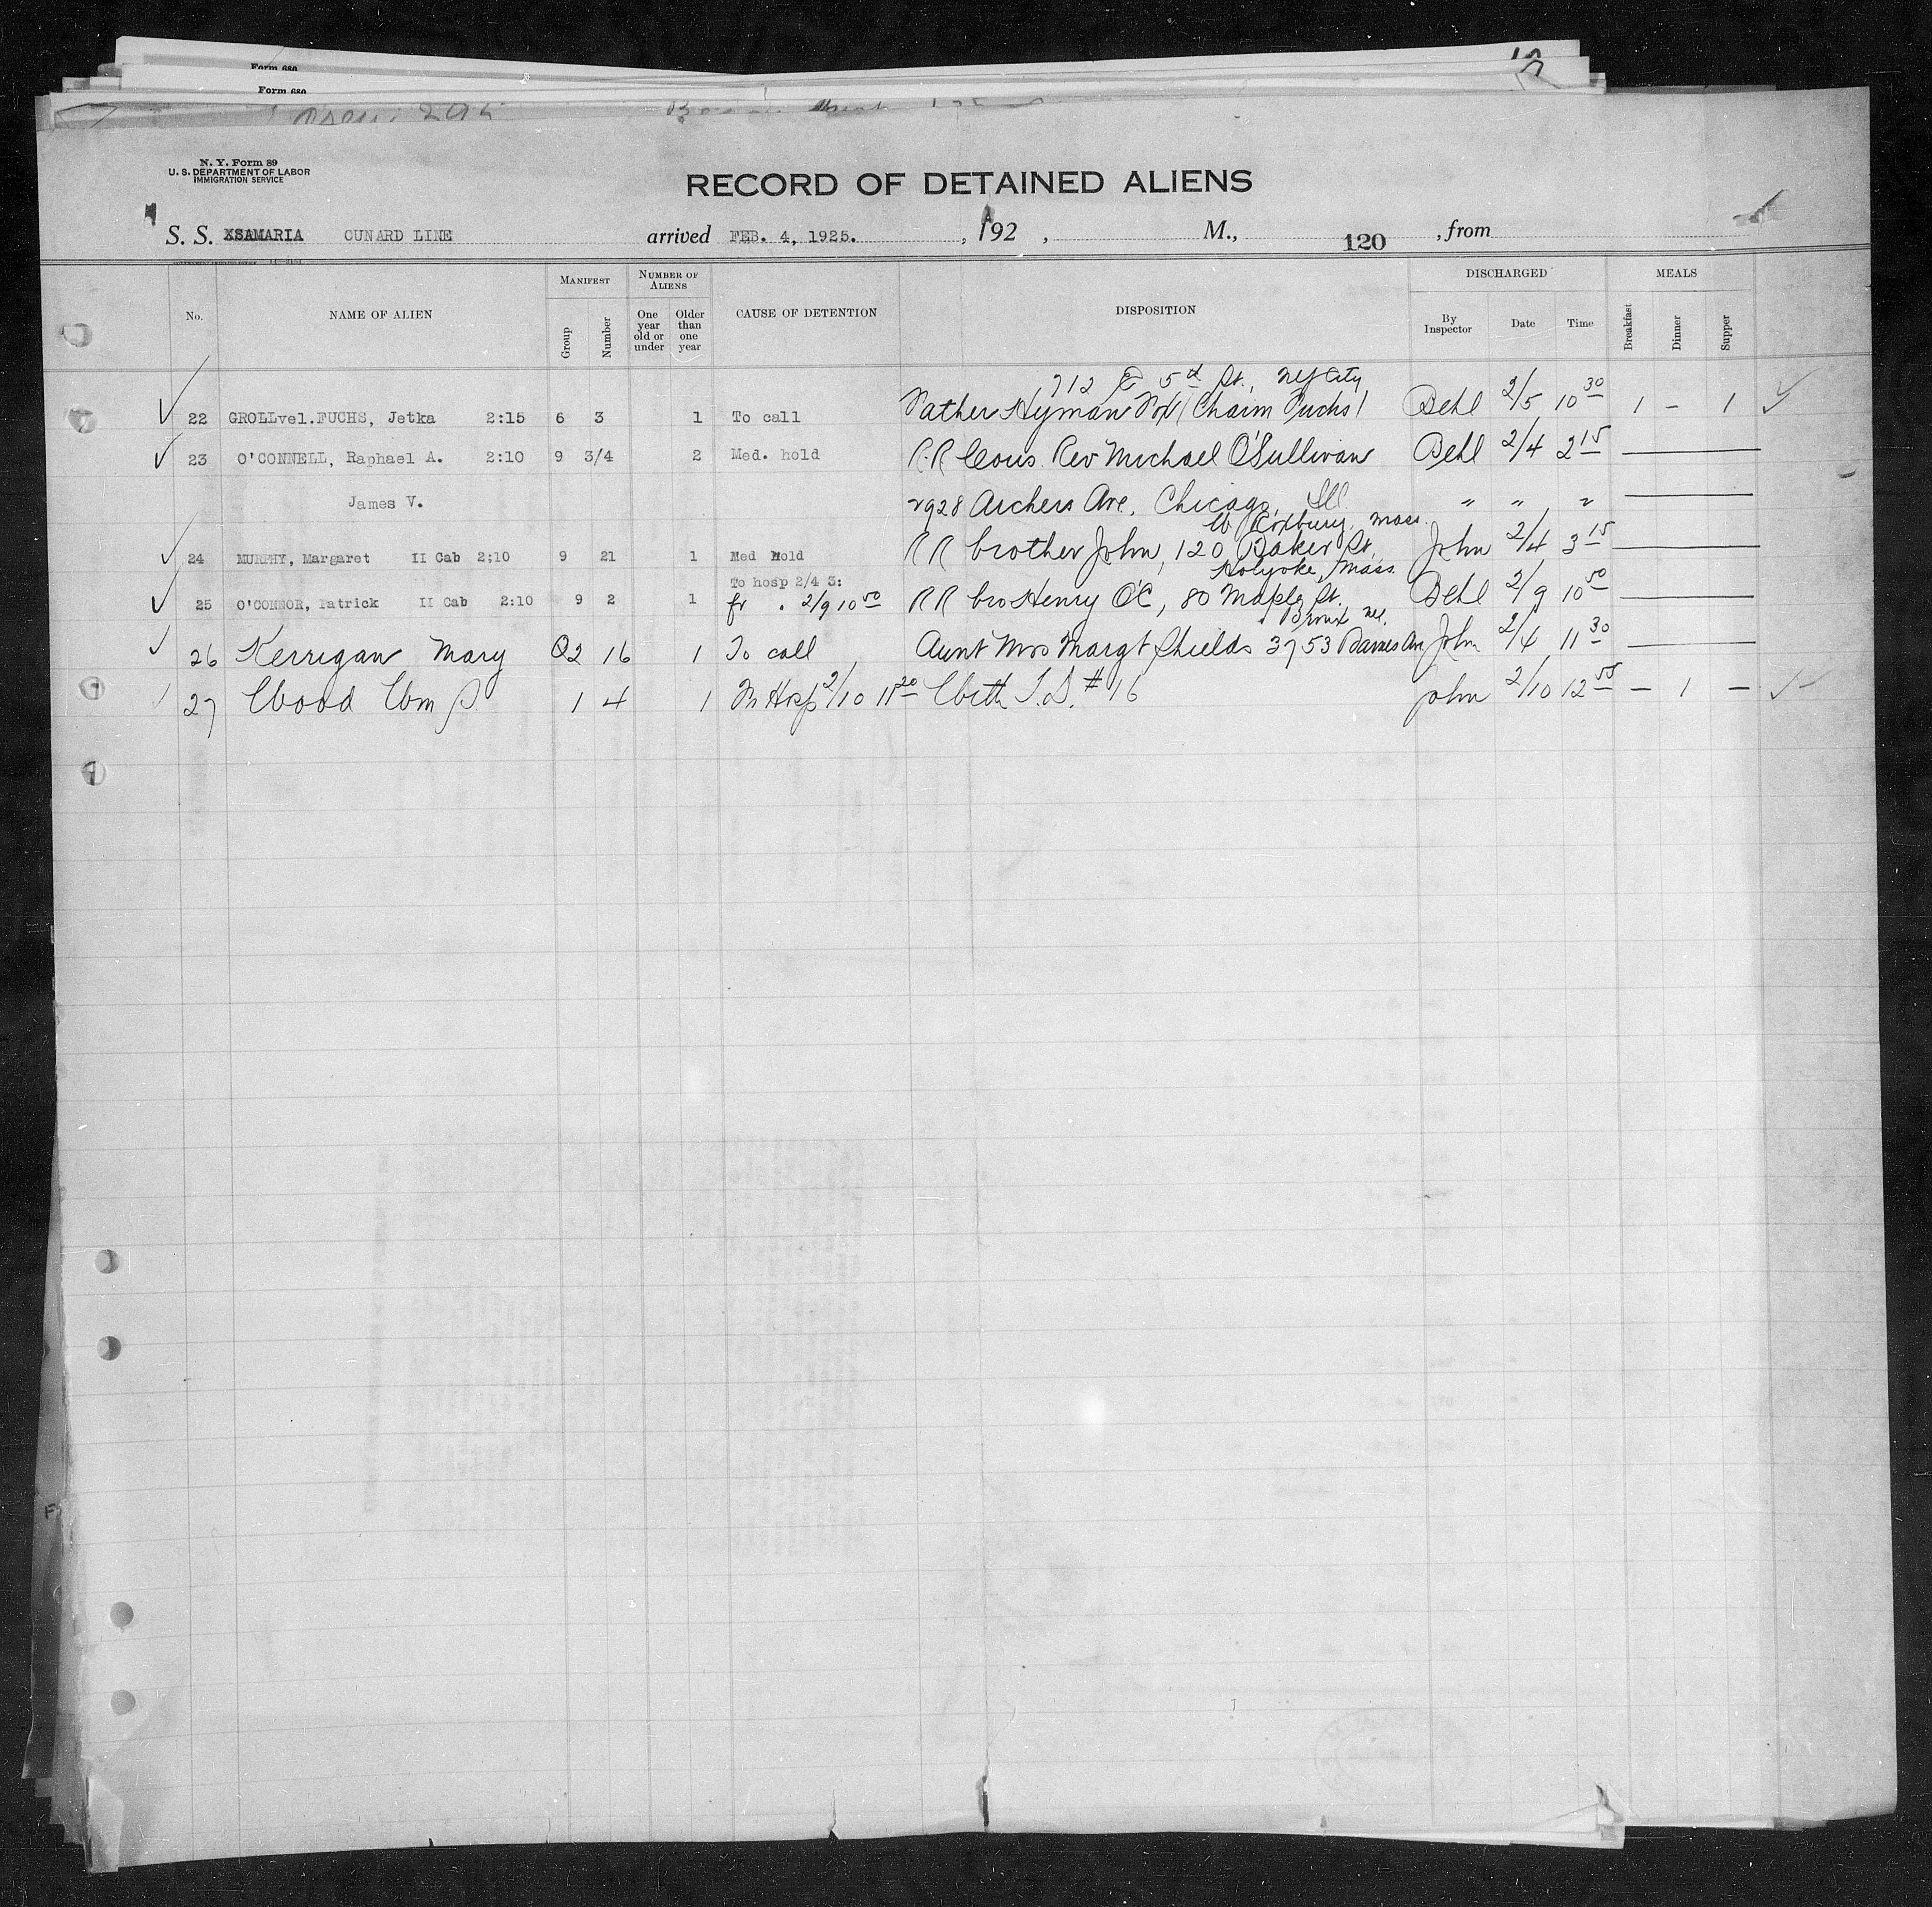 Form 680
Form 680
N. Y. Form 89
U. S. DEPARTMENT OF LABOR
IMMIGRATION SERVICE
RECORD OF DETAINED ALIENS
S. S. XSAMARIA CUNARD LINE arrived FEB. 4, 1925. , 192 , M., 120 , from
No. NAME OF ALIEN MANIFEST NUMBER OF ALIENS CAUSE OF DETENTION DISPOSITION DISCHARGED MEALS
Group Number One year old or under Older than one year By Inspector Date Time Breakfast Dinner Supper
712 E 5th St., NY City
22 GROLLvel.FUCHS, Jetka 2:15 6 3 1 To call Father Hyman Fox (Chaim Fuchs) Behl 2/5 10 30 1 – 1
23 O'CONNELL, Raphael A. 2:10 9 3/4 2 Med. hold R.R Cous. Rev Michael O'Sullivan Behl 2/4 2 15
James V. 2928 Archers Ave. Chicago, Ill. " " "
W Roxbury, Mass.
24 MURPHY, Margaret II Cab 2:10 9 21 1 Med Hold R R brother John, 120 Baker St. John 2/4 3 15
To hosp 2/4 3: Holyoke, Mass.
25 O'CONNOR, Patrick II Cab 2:10 9 2 1 fr " 2/9 10 50 R R bro Henry O'C, 80 Maple St. Behl 2/9 10 50
Bronx NY.
26 Kerrigan Mary Q2 16 1 To call Aunt Mrs Margt Shields 3753 Barnes Av John 2/4 11 30
27 Wood Wm S. 1 4 1 Fr Hosp 2/10 11 20 With S.I. #16 John 2/10 12 55 – 1 –